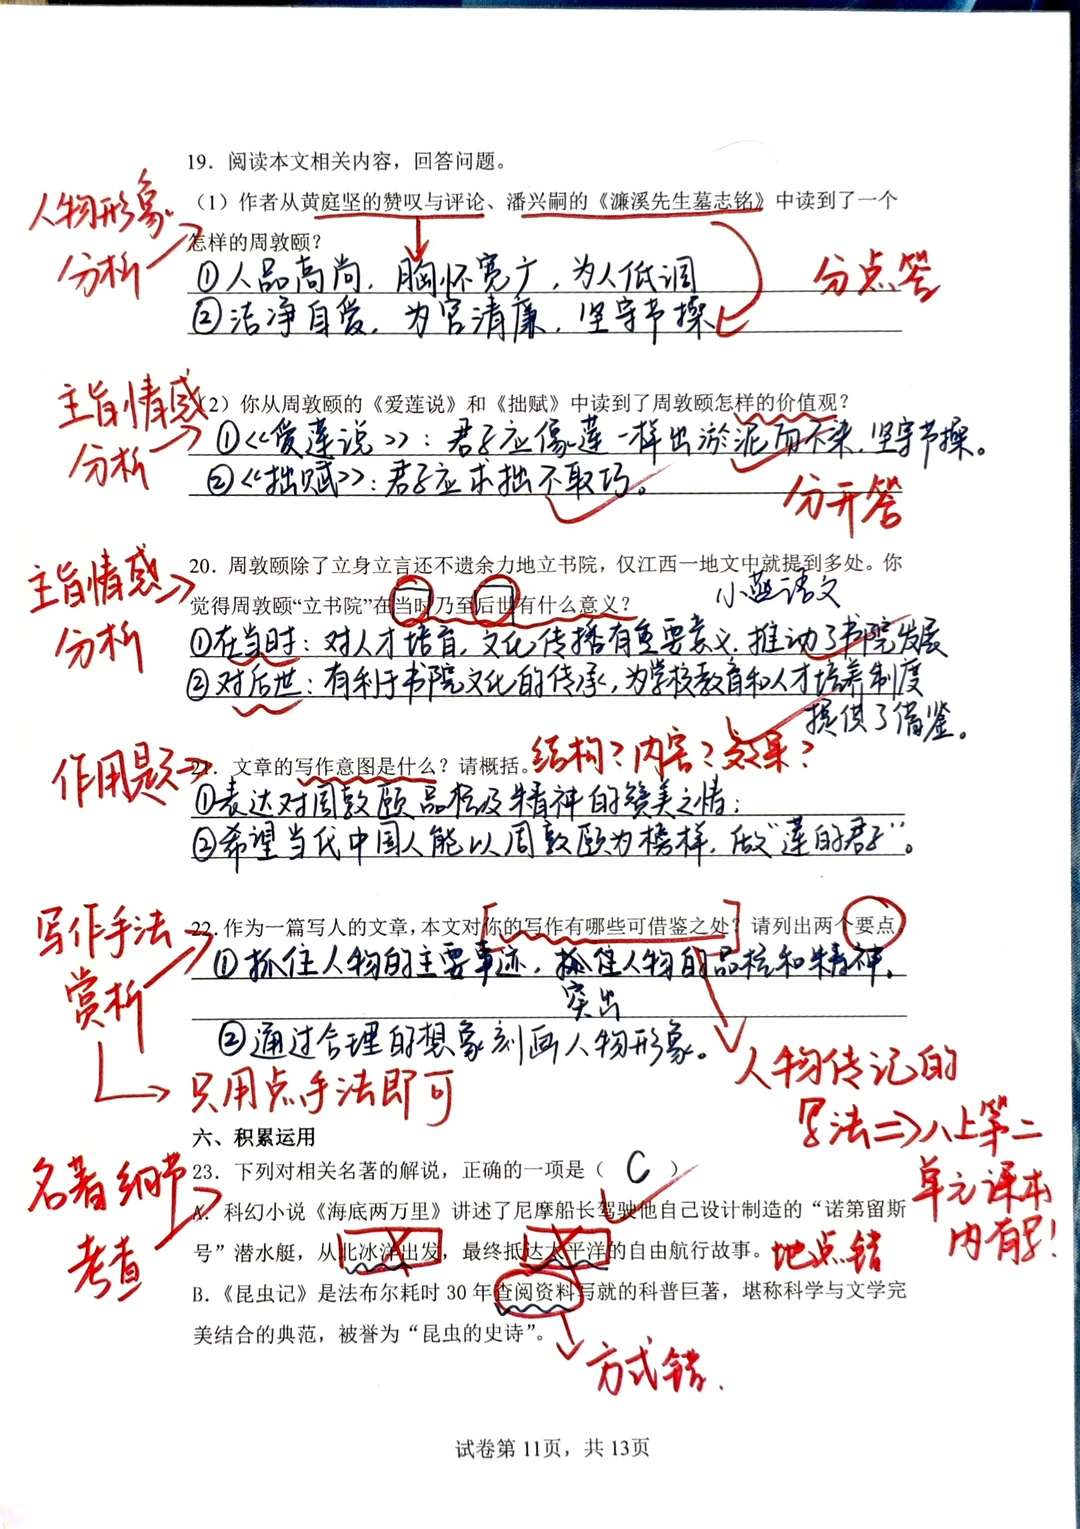 19. 阅读本文相关内容，回答问题。
人物形象分析
（1）作者从黄庭坚的赞叹与评论、潘兴嗣的《濂溪先生墓志铭》中读到了一个
怎样的周敦颐？
①人品高尚，胸怀宽广，为人低调
分点答
②洁净自爱，为官清廉，坚守节操
主旨情感分析
（2）你从周敦颐的《爱莲说》和《拙赋》中读到了周敦颐怎样的价值观？
①《爱莲说》：君子应像莲一样出淤泥而不染，坚守节操。
②《拙赋》：君子应求拙不取巧。
分开答
主旨情感分析
20. 周敦颐除了立身立言还不遗余力地立书院，仅江西一地文中就提到多处。你
觉得周敦颐“立书院”在当时乃至后世有什么意义？
小燕语文
①在当时：对人才培育，文化传播有重要意义，推动了书院发展
②对后世：有利于书院文化的传承，为学校教育和人才培养制度
提供了借鉴。
作用题
21. 文章的写作意图是什么？请概括。
结构？内容？效果？
①表达对周敦颐品格及精神的赞美之情；
②希望当代中国人能以周敦颐为榜样，做“莲的君子”。
写作手法赏析
22. 作为一篇写人的文章，本文对你的写作有哪些可借鉴之处？请列出两个要点。
①抓住人物的主要事迹，抓住人物的品格和精神，
突出
②通过合理的想象刻画人物形象。
只用点手法即可
人物传记的
写法=>八上第二
单元课本
内有写！
六、积累运用
名著细节考查
23. 下列对相关名著的解说，正确的一项是（ C ）
A. 科幻小说《海底两万里》讲述了尼摩船长驾驶他自己设计制造的“诺第留斯
号”潜水艇，从北冰洋出发，最终抵达太平洋的自由航行故事。
地点错
B.《昆虫记》是法布尔耗时 30 年查阅资料写就的科普巨著，堪称科学与文学完
美结合的典范，被誉为“昆虫的史诗”。
方式错.
试卷第 11页，共 13页